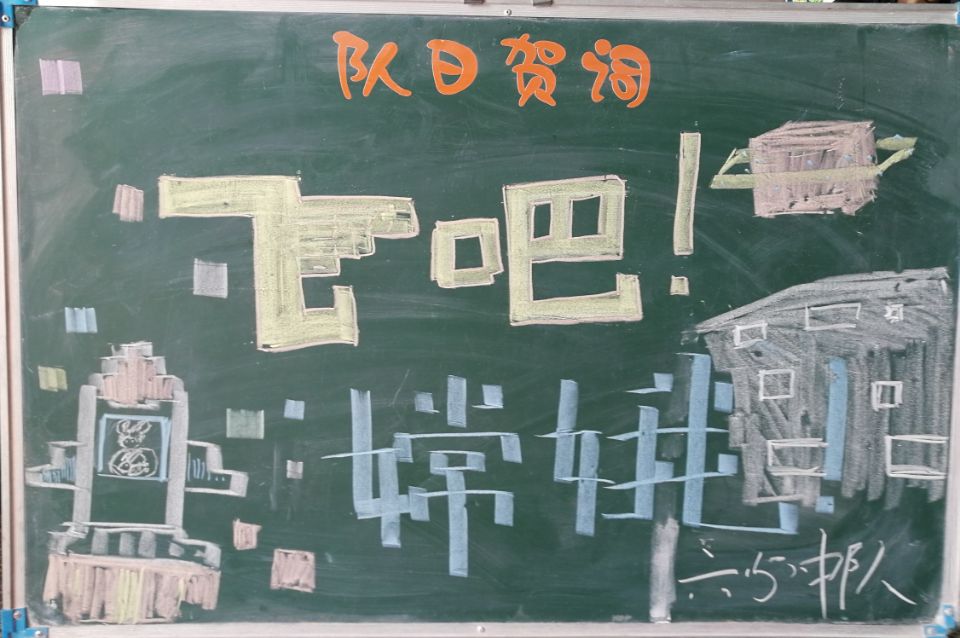 队日贺词
飞吧!
嫦娥!
六(5)中队